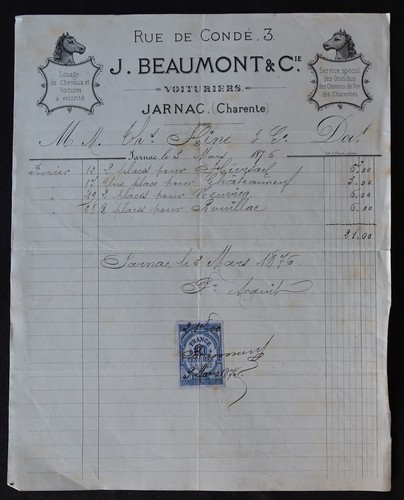 RUE DE CONDÉ, 3.
J. BEAUMONT & CIE
VOITURIERS.
JARNAC, (Charente)
Louage
de Chevaux et
Voitures
à volonté
Service spécial
des Omnibus
des Chemins de Fer
des Charentes.
M M. Ths Hine & Co Dt
Jarnac le 3 Mars 1876
Février 12 2 places pour 5.00
" 17 Une place pour Châteauneuf 3.00
2 places pour Neuvicq 6.00
" 28 2 places pour Rouillac 6.00
21.00
Jarnac le 3 Mars 1876
Pr Acquit
FRANCE
Beaumont
3 Mars 1876